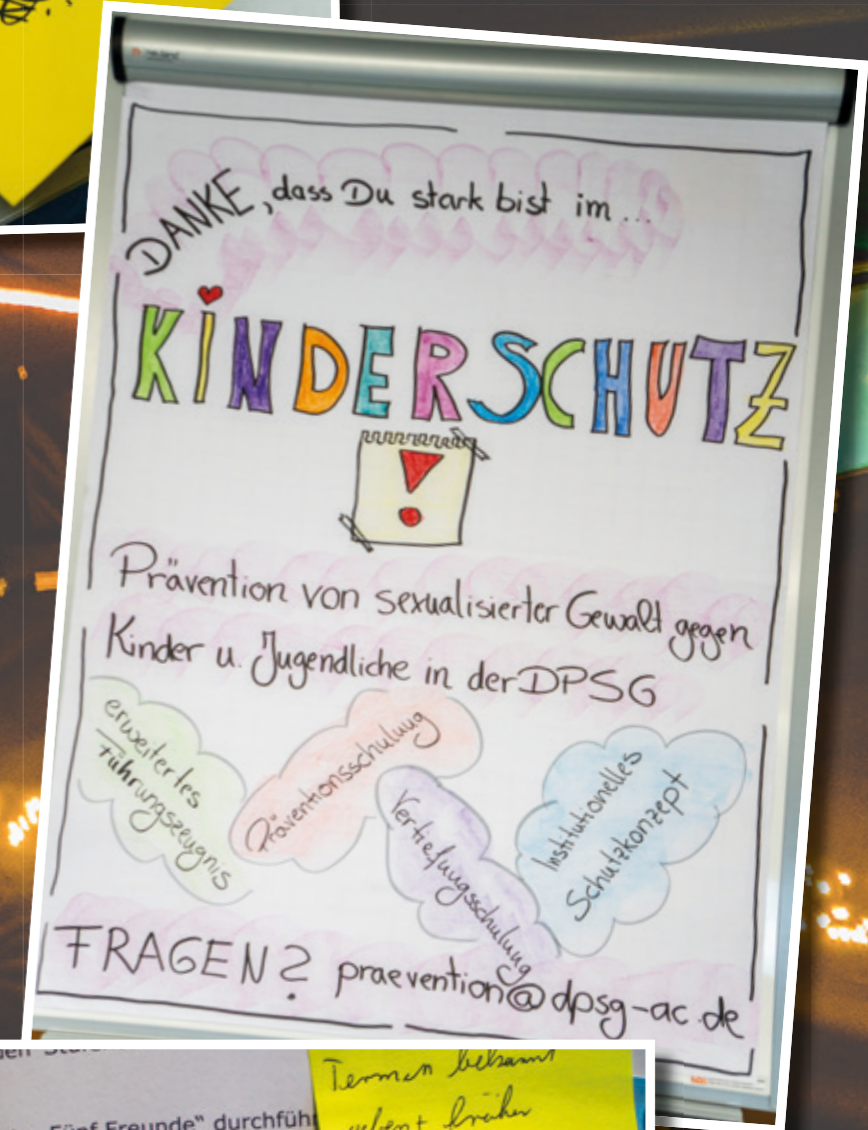 DANKE, dass Du stark bist im...
KINDERSCHUTZ
!
Prävention von sexualisierter Gewalt gegen
Kinder u. Jugendliche in der DPSG
erweitertes
Führungszeugnis
Präventionsschulung
Vertiefungsschulung
Institutionelles
Schutzkonzept
FRAGEN? praevention@dpsg-ac.de
Fünf Freunde" durchfüh
Termin bekannt
früher